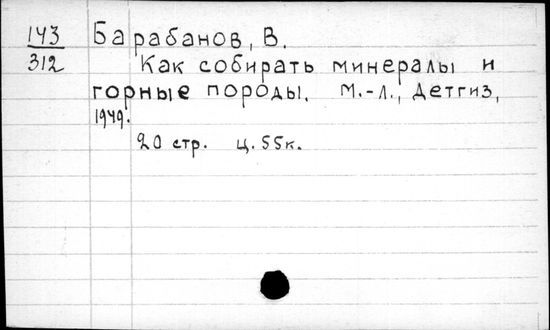 143 Барабанов, В.
312 Как собирать минералы и
горные породы. М.-Л., Детгиз,
1949.
20 стр. ц. 55к.